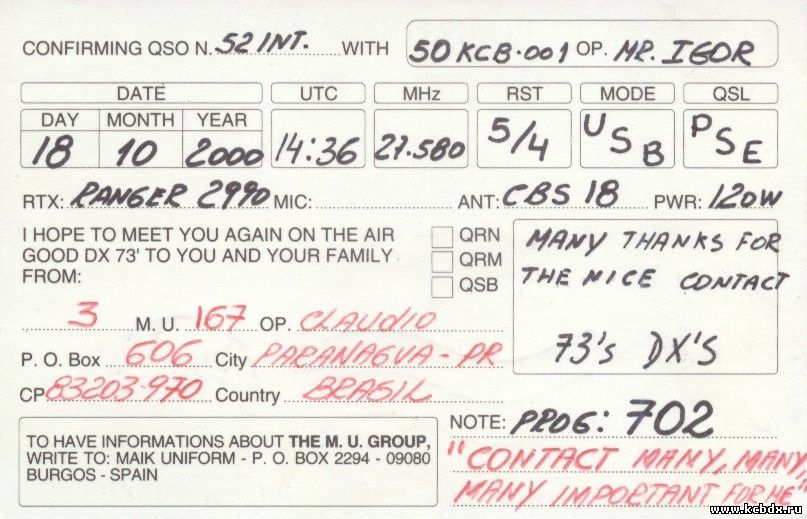 CONFIRMING QSO N. 52 INT. WITH 50 KCB-001 OP. MR. IGOR
DATE UTC MHz RST MODE QSL
DAY MONTH YEAR
18 10 2000 14:36 27.580 5/4 USB PSE
RTX: RANGER 2990 MIC: ANT: CBS 18 PWR: 120W
I HOPE TO MEET YOU AGAIN ON THE AIR
GOOD DX 73' TO YOU AND YOUR FAMILY
FROM:
QRN
QRM
QSB
MANY THANKS FOR
THE NICE CONTACT
73's DX'S
3 M. U. 167 OP. CLAUDIO
P. O. Box 606 City PARANAGUA - PR
CP 83203-970 Country BRASIL
NOTE: PROG: 702
"CONTACT MANY, MANY,
MANY IMPORTANT FOR ME"
TO HAVE INFORMATIONS ABOUT THE M. U. GROUP,
WRITE TO: MAIK UNIFORM - P. O. BOX 2294 - 09080
BURGOS - SPAIN
www.kcbdx.ru